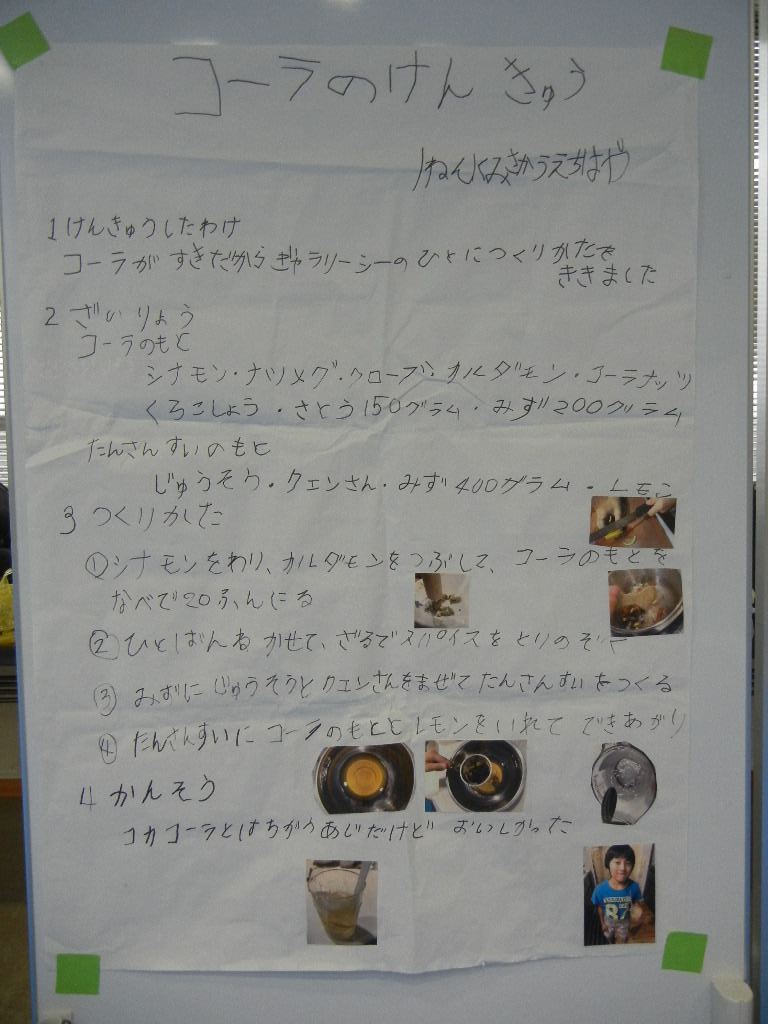 コーラのけんきゅう
1ねん1くみさかうえちはや
1けんきゅうしたわけ
コーラがすきだからぎゃラリーシーのひとにつくりかたを
ききました
2 ざいりょう
コーラのもと
シナモン・ナツメグ・クローブ・カルダモン・コーラナッツ
くろこしょう・さとう150グラム・みず200グラム
たんさんすいのもと
じゅうそう・クエンさん・みず400グラム・レモン
3 つくりかた
①シナモンをわり、カルダモンをつぶして、コーラのもとを
なべで20ふんにる
②ひとばんねかせて、ざるでスパイスをとりのぞく
③みずにじゅうそうとクエンさんをまぜてたんさんすいをつくる
④たんさんすいにコーラのもととレモンをいれてできあがり
4 かんそう
コカコーラとはちがうあじだけどおいしかった
87